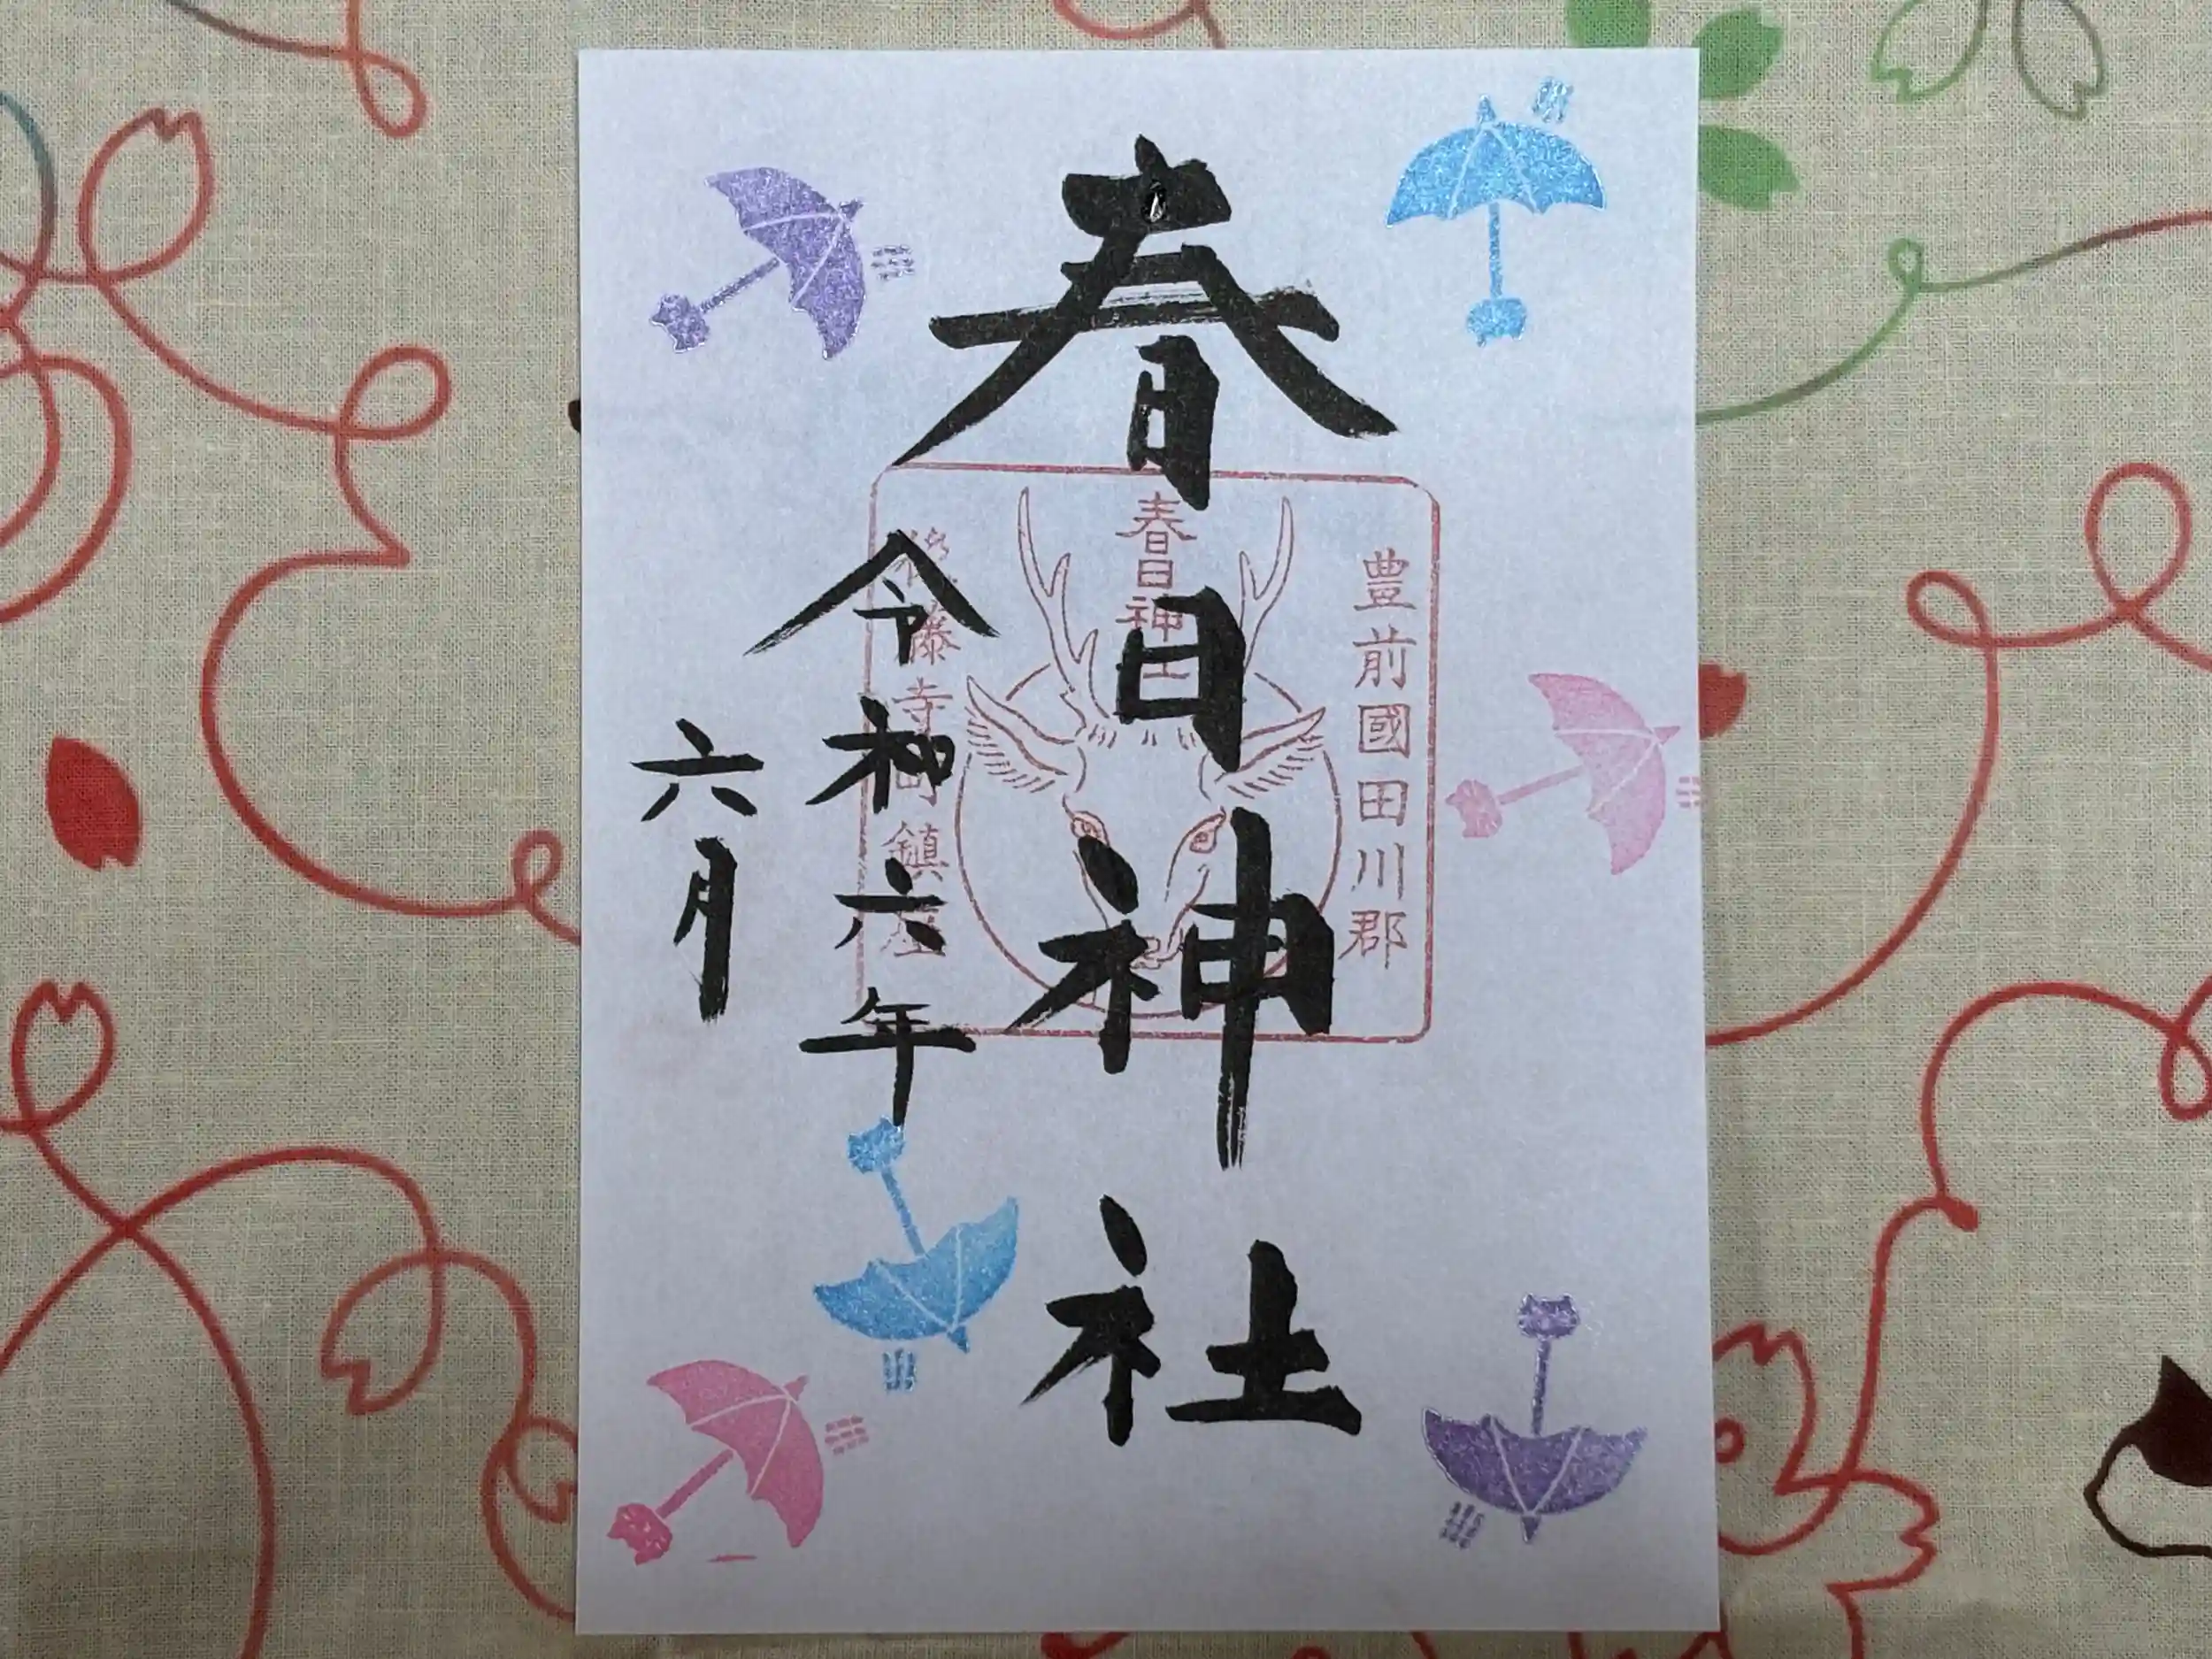 春日神社
令和六年
六月
豊前國田川郡
春日神社
後藤寺町鎮座